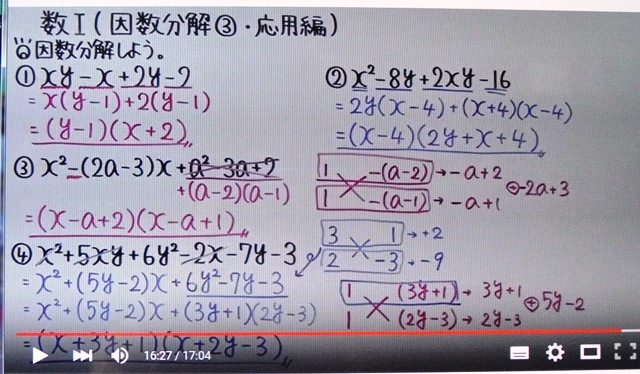 数I(因数分解③・応用編)
因数分解しよう。
① xy-x+2y-2
=x(y-1)+2(y-1)
=(y-1)(x+2)
② x²-8y+2xy-16
=2y(x-4)+(x+4)(x-4)
=(x-4)(2y+x+4)
③ x²-(2a-3)x+a²-3a+2
+(a-2)(a-1)
=(x-a+2)(x-a+1)
1 -(a-2)→-a+2
1 -(a-1)→-a+1
⊕-2a+3
④ x²+5xy+6y²-2x-7y-3
=x²+(5y-2)x+6y²-7y-3
=x²+(5y-2)x+(3y+1)(2y-3)
=(x+3y+1)(x+2y-3)
3 1→+2
2 -3→-9
1 (3y+1)→3y+1
1 (2y-3)→2y-3
⊕5y-2
16:27 / 17:04